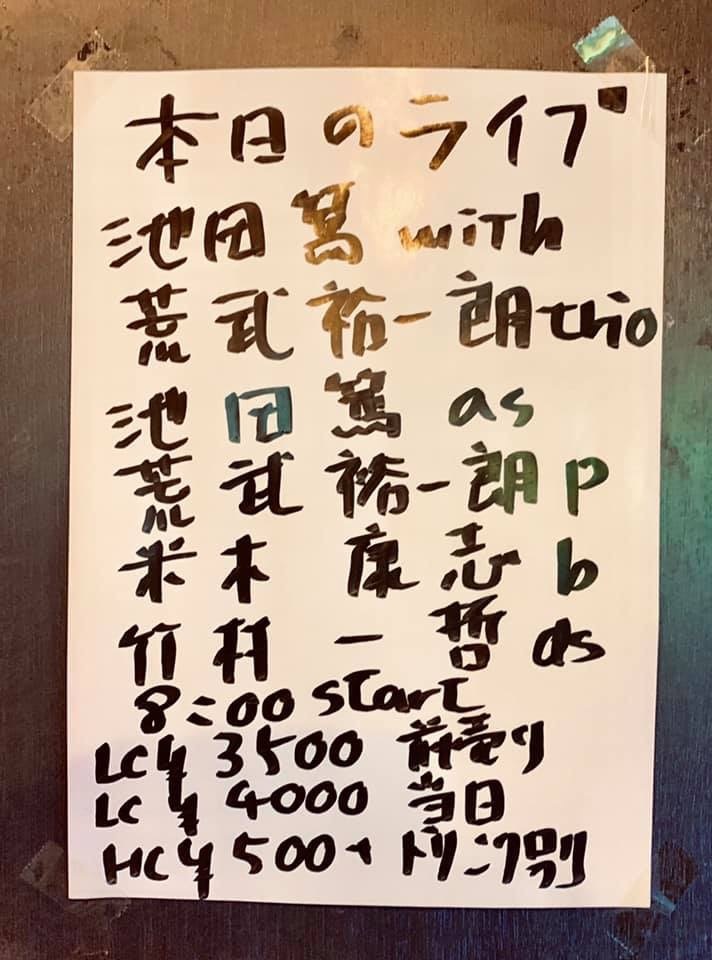 本日のライブ
池田篤 with
荒武裕一朗trio
池田篤 as
荒武裕一朗 p
米木康志 b
竹村一哲 ds
8:00 start
LC¥3500 前売り
LC¥4000 当日
HC¥500+ドリンク別